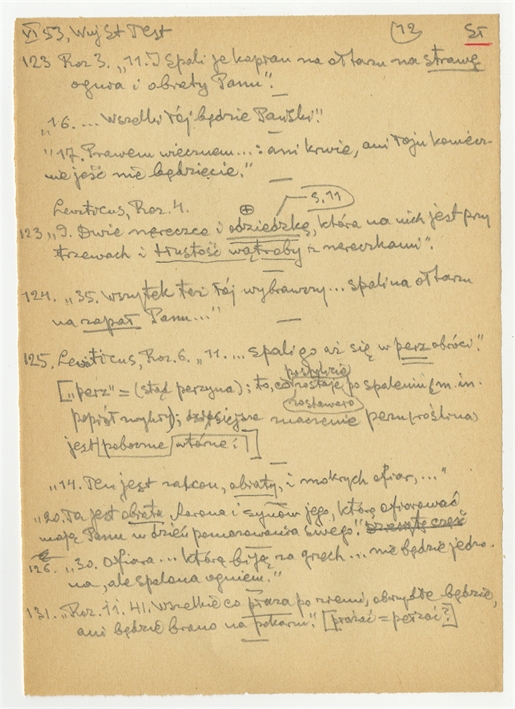 VI 53, Wuj St Test (12) St
123 Roz 3. „11. I spali je kapłan na ołtarzu na strawę
ognia i obiaty Panu".
„16. ... Wszelki łój będzie Pański".
„17. Prawem wiecznem...: ani krwie, ani łoju koniecz-
nie jeść nie będziecie."
Leviticus, Roz. 4. s. 11
123 „9. Dwie nereczce i odziedzkę, która na nich jest przy
trzewach i tłustość wątroby z nereczkami".
124. „35. wszytek też łój wybrawszy... spali na ołtarzu
na zapał Panu..."
125. Leviticus, Roz. 6. „11. ... spali go aż się w perz obróci."
["perz" = (stąd perzyna); to, co zostaje po spaleniu (m. in.
popiół zwykły); dzisiejsze znaczenie perzu (roślina)
jest poboczne wtórne?]
„14. Ten jest zakon, obiaty, i mokrych ofiar, ..."
„20. Ta jest obiata Aarona i synów jego, którą ofiarować
mają Panu w dzień pomazowania swego."
126. „30. Ofiara... którą biją za grzech... nie będzie jedzo-
na, ale spalona ogniem."
131. „Roz. 11. 41. Wszelkie co płaza po ziemi, obrzydłe będzie,
ani będzie brano na pokarm." [płazać = pełzać?]